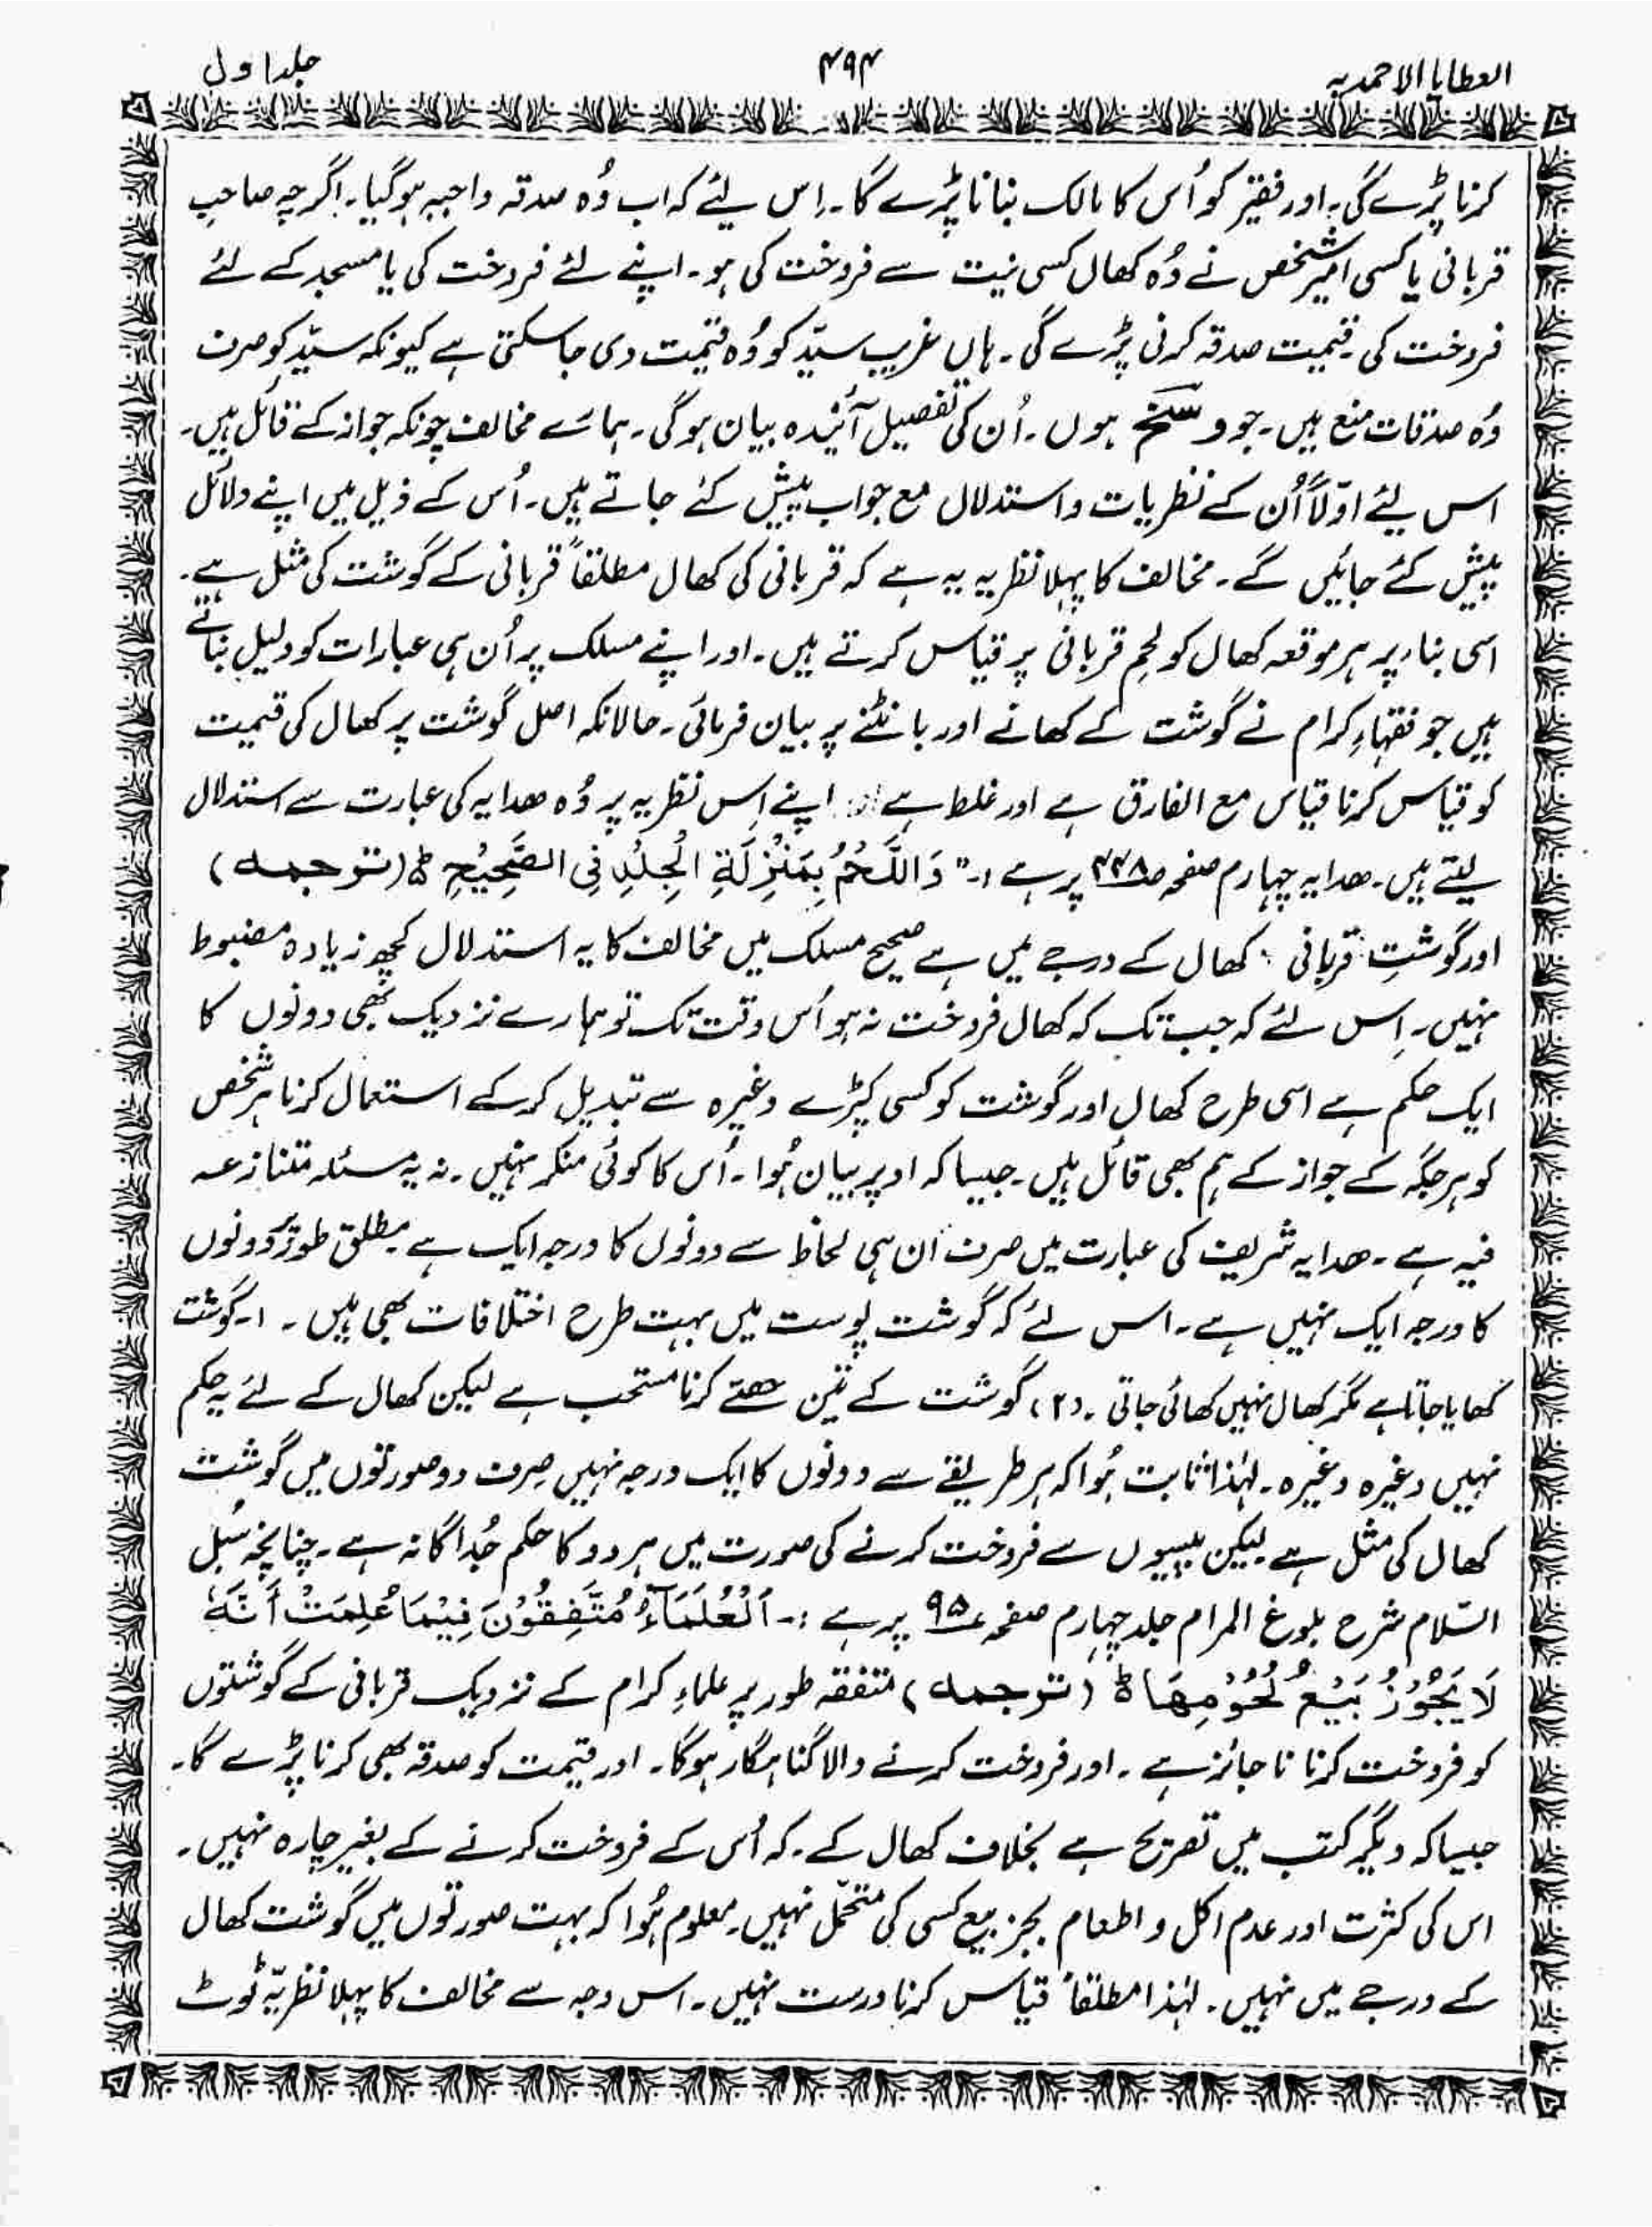 العطایا الاحمدیہ ۴۹۴ جلد اول
کرنا پڑے گی۔ اور فقیر کو اُس کا مالک بنانا پڑے گا۔ اِس لیٔے کہ اب وُہ صدقہ واجبہ ہوگیا۔ اگرچہ صاحبِ
قربانی یا کسی امیر شخص نے وُہ کھال کسی نیت سے فروخت کی ہو۔ اپنے لئے فروخت کی یا مسجد کے لئے
فروخت کی۔ قیمت صدقہ کرنی پڑے گی۔ ہاں غریب سیّد کو وُہ قیمت دی جاسکتی ہے کیونکہ سیّد کو صرف
وُہ صدقات منع ہیں۔ جو وسخ ہوں۔ اُن کی تفصیل آئندہ بیان ہوگی۔ ہمارے مخالف چونکہ جواز کے قائل ہیں۔
اس لیٔے اوّلاً اُن کے نظریات و استدلال مع جواب پیش کئے جاتے ہیں۔ اُس کے ذیل میں اپنے دلائل
پیش کئے جائیں گے۔ مخالف کا پہلا نظریہ یہ ہے کہ قربانی کی کھال مطلقاً قربانی کے گوشت کی مثل ہے۔
اسی بناء پر ہر موقعہ کھال کو لحمِ قربانی پر قیاس کرتے ہیں۔ اور اپنے مسلک پر اُن ہی عبارات کو دلیل بناتے
ہیں جو فقہاءِ کرام نے گوشت کے کھانے اور بانٹنے پر بیان فرمائی۔ حالانکہ اصل گوشت پر کھال کی قیمت
کو قیاس کرنا قیاس مع الفارق ہے اور غلط ہے اپنے اِس نظریہ پر وُہ ھدایہ کی عبارت سے استدلال
لیتے ہیں۔ ھدایہ چہارم صفحہ ص۴۴۸ پر ہے :۔ ”وَاللَّحْمُ بِمَنْزِلَةِ الْجِلْدِ فِی الصَّحِیْحِ ط (ترجمہ)
اور گوشتِ قربانی کھال کے درجے میں ہے صحیح مسلک میں مخالف کا یہ استدلال کچھ زیادہ مضبوط
نہیں۔ اِس لئے کہ جب تک کہ کھال فروخت نہ ہو اُس وقت تک تو ہمارے نزدیک بھی دونوں کا
ایک حکم ہے اسی طرح کھال اور گوشت کو کسی کپڑے وغیرہ سے تبدیل کرکے استعمال کرنا ہر شخص
کو ہر جگہ کے جواز کے ہم بھی قائل ہیں۔ جیسا کہ اوپر بیان ہُوا۔ اُس کا کوئی منکر نہیں۔ نہ یہ مسئلہ متنازعہ
فیہ ہے۔ ھدایہ شریف کی عبارت میں صرف ان ہی لحاظ سے دونوں کا درجہ ایک ہے مطلق طور پر دونوں
کا درجہ ایک نہیں ہے۔ اس لئے کہ گوشت پوست میں بہت طرح اختلافات بھی ہیں۔ ۱۔ گوشت
کھایا جاتا ہے مگر کھال نہیں کھائی جاتی۔ (۲) گوشت کے تین حصّے کرنا مستحب ہے لیکن کھال کے لئے یہ حکم
نہیں وغیرہ وغیرہ۔ لہٰذا ثابت ہُوا کہ ہر طریقے سے دونوں کا ایک درجہ نہیں صرف دو صورتوں میں گوشت
کھال کی مثل ہے لیکن پیسوں سے فروخت کرنے کی صورت میں ہر دو کا حکم جُداگانہ ہے۔ چنانچہ سُبل
السّلام شرح بلوغ المرام جلد چہارم صفحہ ۹۵ پر ہے :۔ اَلْعُلَمَاۤءُ مُتَّفِقُوْنَ فِیْمَا عُلِمَتْ اَنَّهٗ
لَا یَجُوْزُ بَیْعُ لُحُوْمِهَا ط (ترجمہ) متفقہ طور پر علماءِ کرام کے نزدیک قربانی کے گوشتوں
کو فروخت کرنا نا جائز ہے۔ اور فروخت کرنے والا گناہگار ہوگا۔ اور قیمت کو صدقہ بھی کرنا پڑے گا۔
جیسا کہ دیگر کتب میں تصریح ہے بخلاف کھال کے۔ کہ اُس کے فروخت کرنے کے بغیر چارہ نہیں۔
اس کی کثرت اور عدم اکل و اطعام بجز بیع کسی کی متحمّل نہیں۔ معلوم ہُوا کہ بہت صورتوں میں گوشت کھال
کے درجے میں نہیں۔ لہٰذا مطلقاً قیاس کرنا درست نہیں۔ اس وجہ سے مخالف کا پہلا نظریّہ ٹوٹ